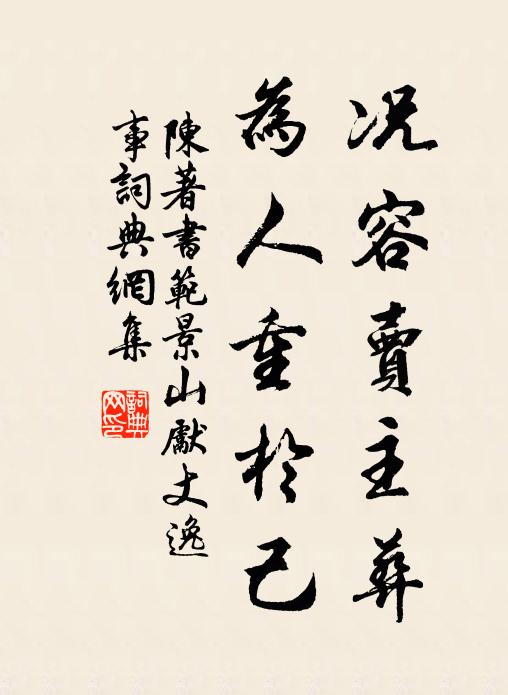 况容賣主葬
為人重於己
陳著書範景山獻丈逸
事詞典網集
詞典
网印